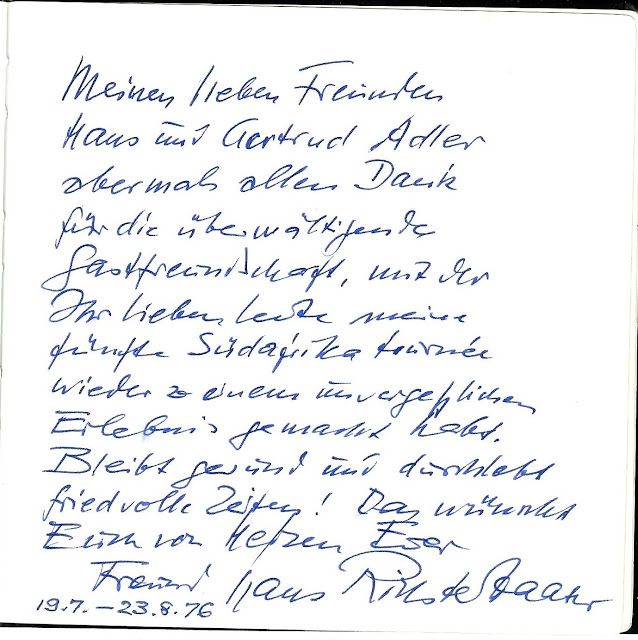 Meinen lieben Freunden
Hans und Gertrud Adler
abermals allen Dank
für die überwältigende
Gastfreundschaft, mit der
Ihr lieben Leute meine
fünfte Südafrika tournée
wieder zu einem unvergeßlichen
Erlebnis gemacht habt.
Bleibt gesund und durchlebt
friedvolle Zeiten! Das wünscht
Euch von Herzen Euer
Freund Hans Richter-Haaser
19.7. – 23.8.76